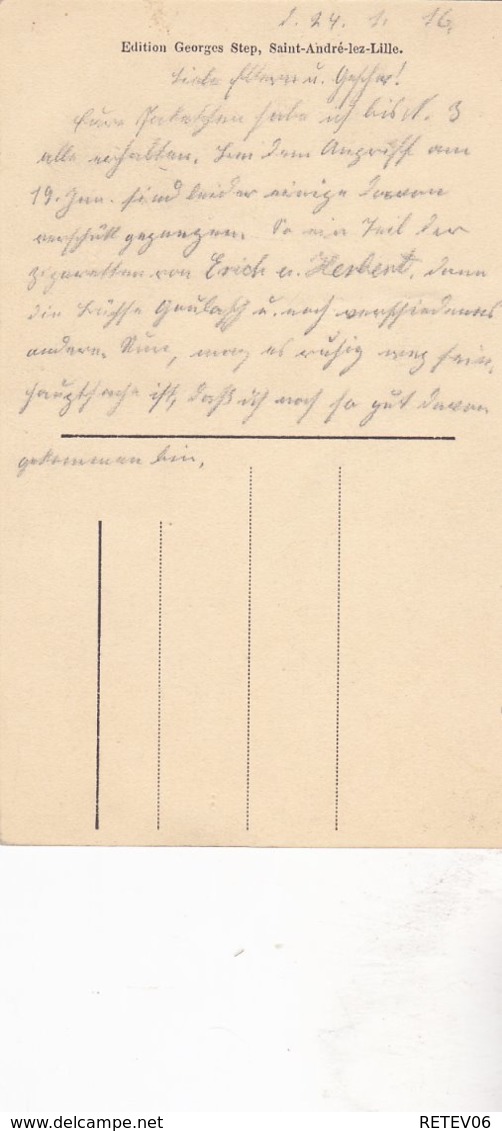 d. 24. 1. 16.
Edition Georges Step, Saint-André-lez-Lille.
Liebe Eltern u. Geschw!
Eure Paketchen habe ich bis N. 3
alle erhalten. Bei dem Angriff am
19. Jan. sind leider einige davon
verschütt gegangen. So ein Teil der
Zigaretten von Erich u. Herbert, dann
die Büchse Goulasch u. noch verschiedenes
andere. Nun, mag es ruhig weg sein,
Hauptsache ist, daß ich noch so gut davon
gekommen bin.
RETEV06